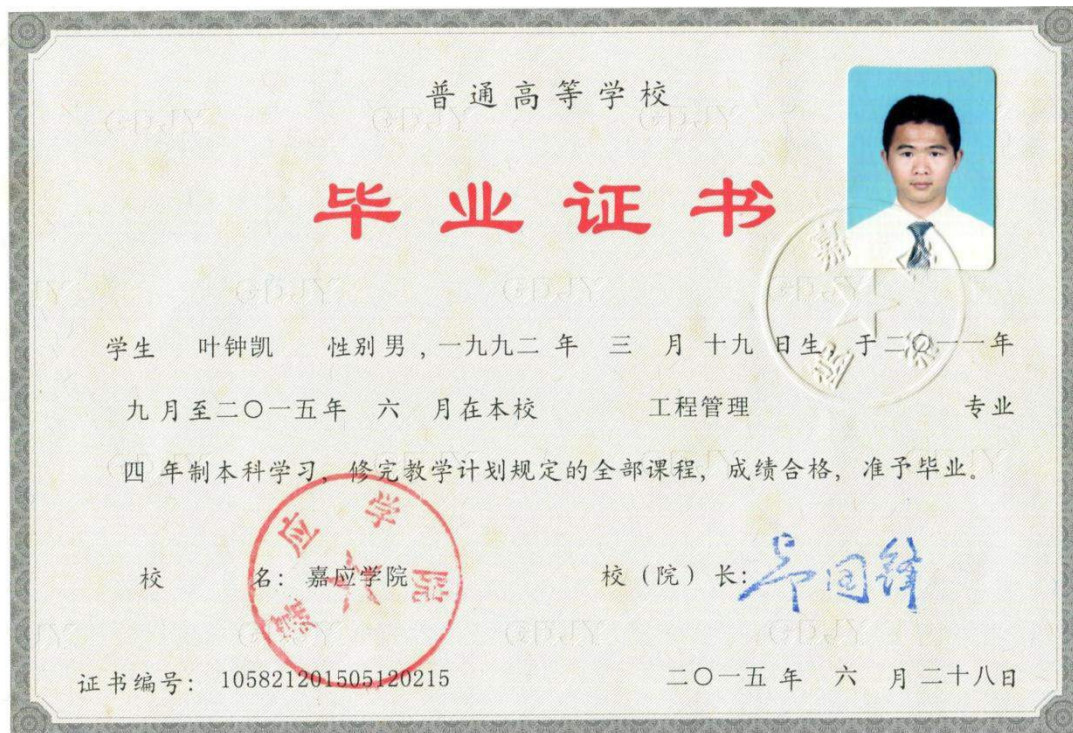 普通高等学校
毕业证书
学生 叶钟凯 性别 男 , 一九九二 年 三 月 十九 日生, 于二〇一一年
九 月至二〇一五年 六 月在本校 工程管理 专业
四 年制本科学习, 修完教学计划规定的全部课程, 成绩合格, 准予毕业。
校 名: 嘉应学院 校（院）长:
嘉应学院
证书编号: 105821201505120215 二〇一五 年 六 月 二十八日